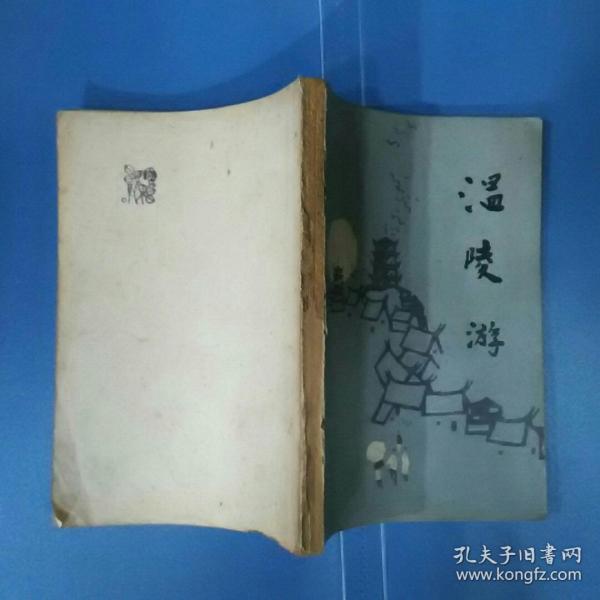 温陵游
孔夫子旧書网
www.kongfz.com